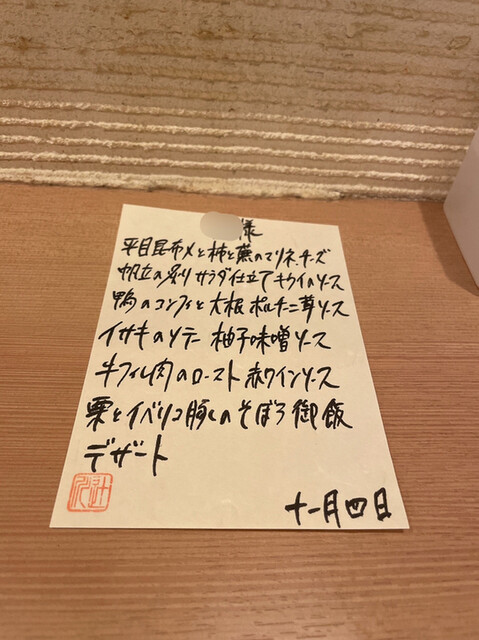 様
平目昆布〆と柿と蕪のマリネ、チーズ
帆立の炙り サラダ仕立て キウイのソース
鴨のコンフィと大根 ポルチーニ茸ソース
イサキのソテー 柚子味噌ソース
牛フィレ肉のロースト 赤ワインソース
栗とイベリコ豚しのそぼろ御飯
デザート
十一月四日